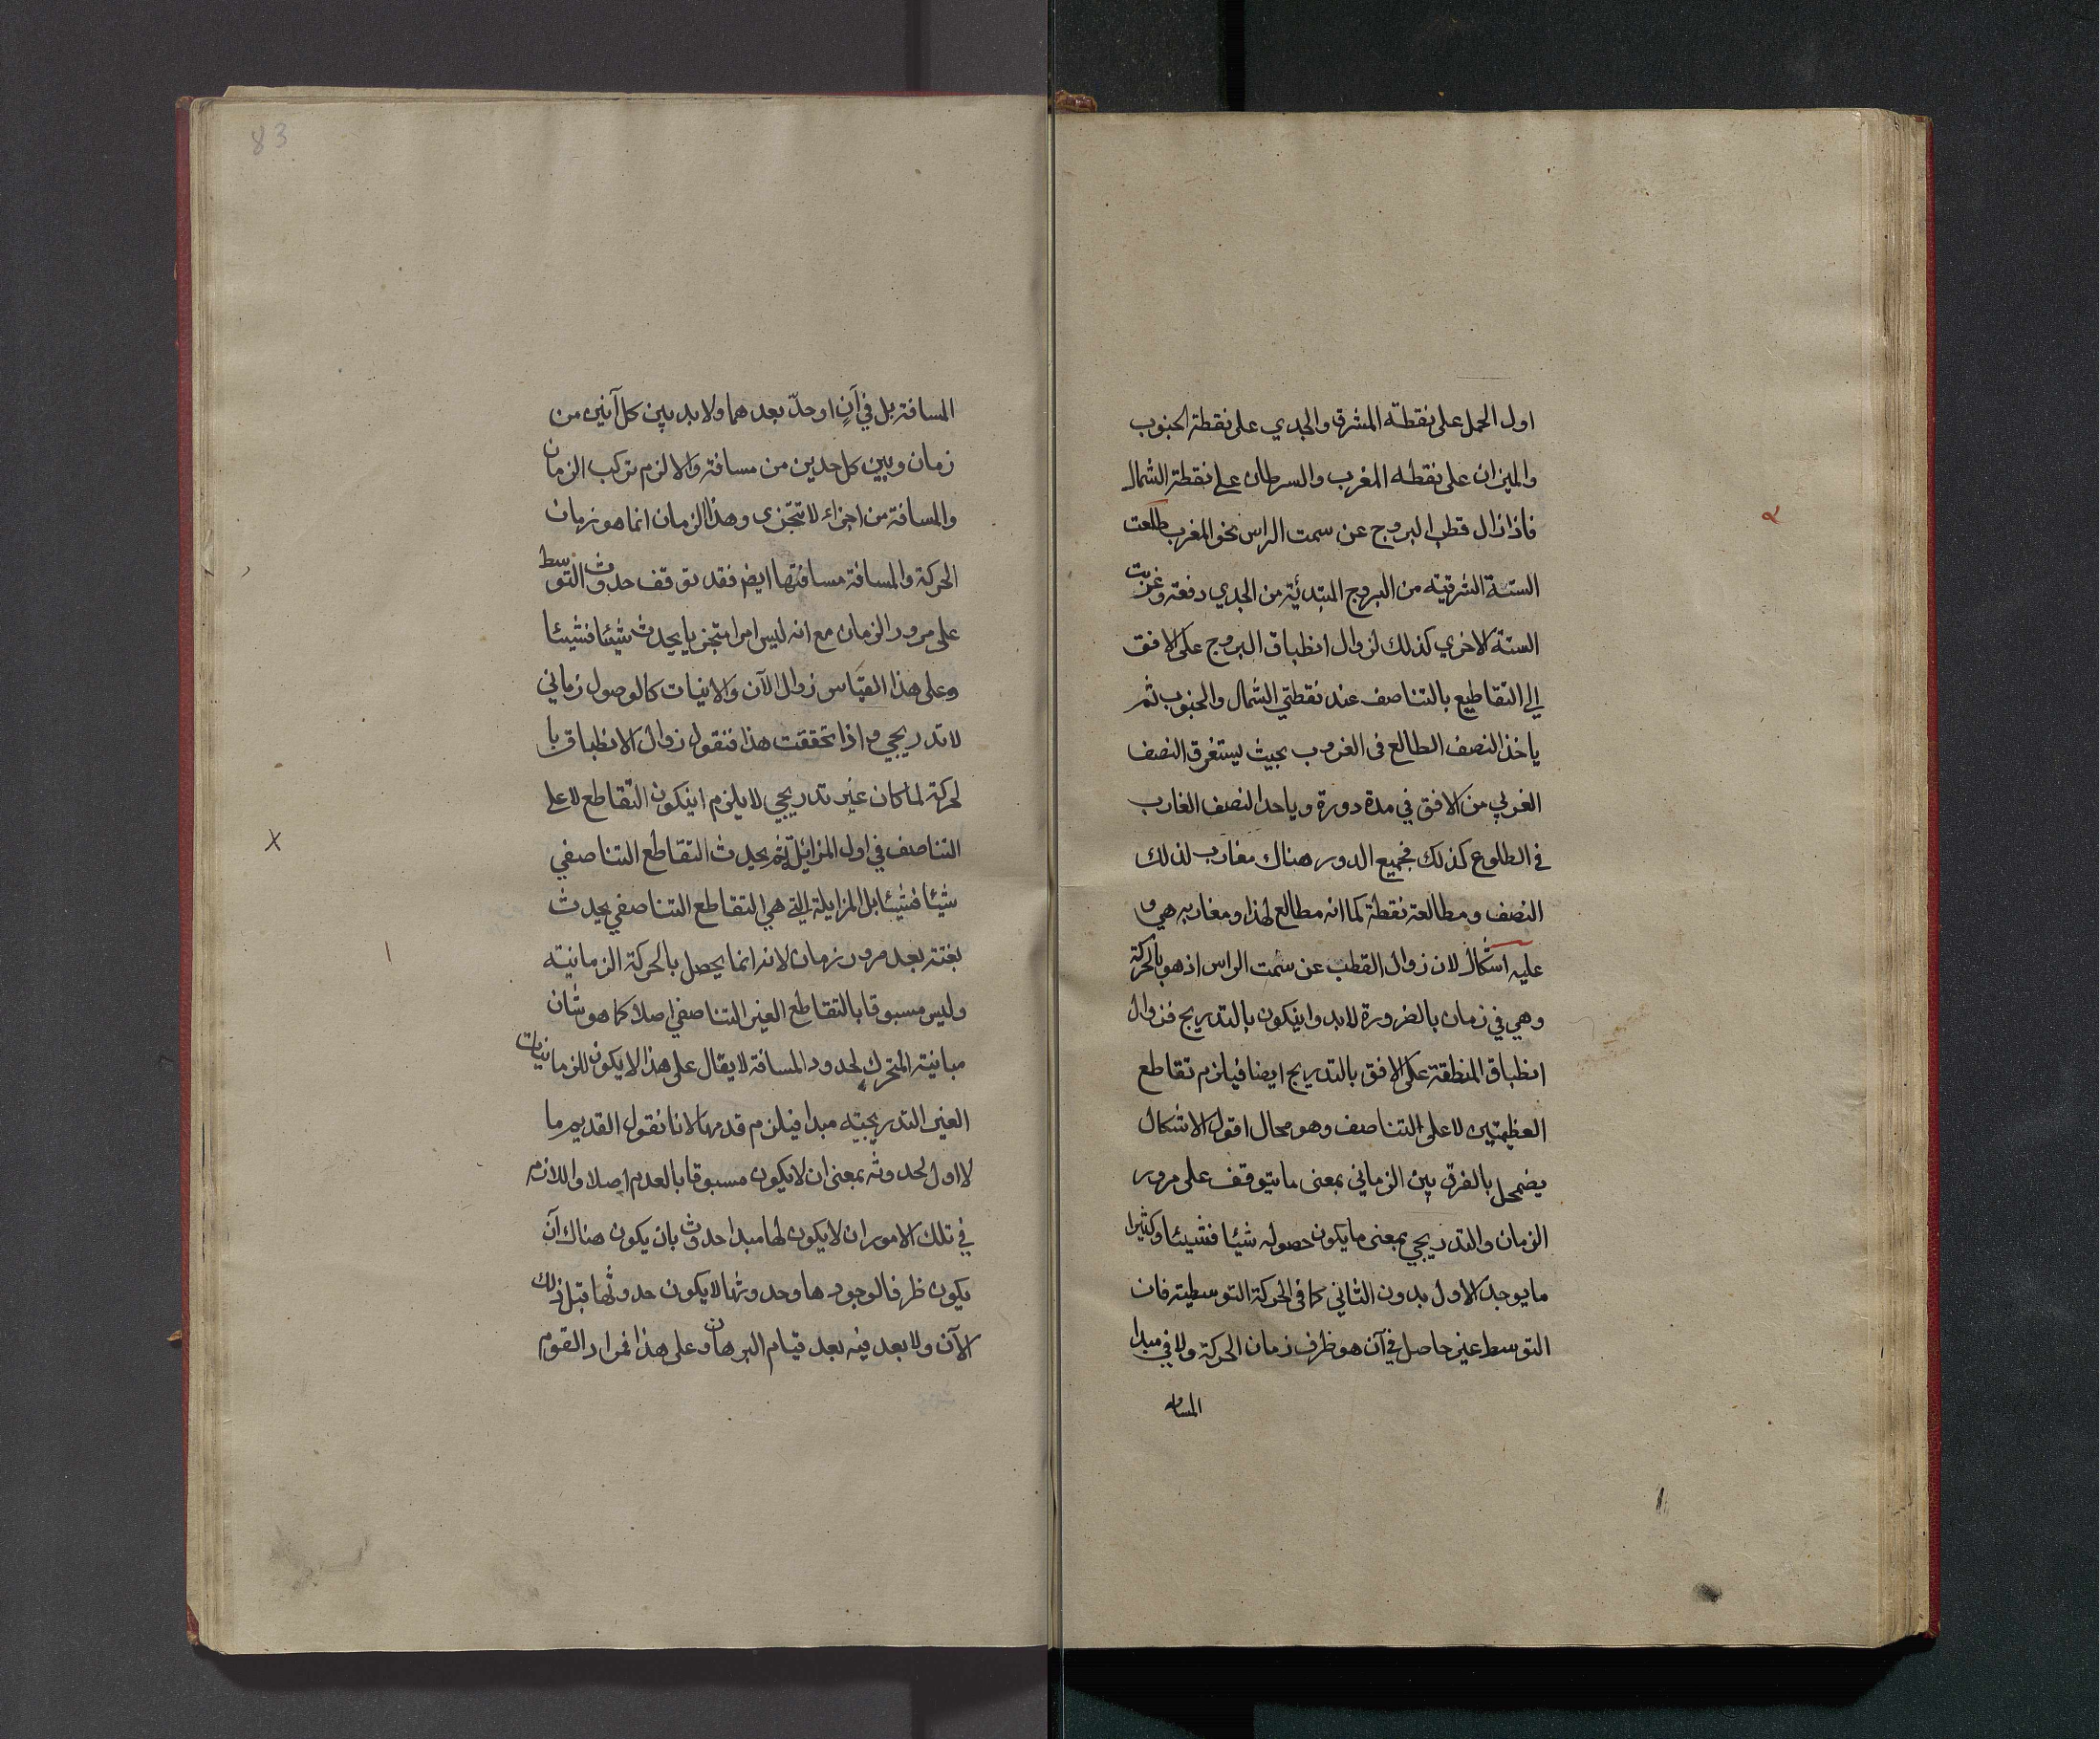 اول الحمل على نقطة المشرق والجدي على نقطة الجنوب
والميزان على نقطه المغرب والسرطان على نقطة الشمال
فاذا زال قطب البروج عن سمت الراس نحو المغرب طلعت
الستة الشرقيته من البروج المبتدئية من الجدي دفعة وغربت
الستة الاخري كذلك لزوال انطباق البروج على الافق
الى التقاطيع بالتناصف عند نقطتي الشمال والجنوب ثم
ياخذ النصف الطالع فى الغروب بحيث يستغرق النصف
الغربي من الافق في مدة دورة وياخذ النصف الغارب
في الطلوع كذلك فجميع الدور هناك مغارب لذلك
النصف ومطالعة نقطة كما انه مطالع لهذا ومغاربه هي و
عليه اشكال لان زوال القطب عن سمت الراس اذ هو بالحركة
وهي في زمان بالضرورة لابد وان يكون بالتدريج فزوال
انطباق المنطقة على الافق بالتدريج ايضا فيلزم تقاطع
العظيمتين لا على التناصف وهو محال اقول الاشكال
يضمحل بالفرق بين الزماني بمعنى ما يتوقف على مرور
الزمان والتدريجي بمعنى ما يكون حصوله شيئا فشيئا وكثيرا
ما يوجد الاول بدون الثاني كما فى الحركة التوسطية فان
التوسط غير حاصل في آن هو ظرف زمان الحركة ولا في مبدا
المسافه
83
المسافة بل في آنٍ او حدّ بعدهما ولا بد بين كل آنين من
زمان وبين كل حدين من مسافة والا لزم تركب الزمان
والمسافة من اجزاء لا تتجزى وهذا الزمان انما هو زمان
الحركة والمسافة مسافتها ايض فقد توقف حدوث التوسط
على مرور الزمان مع انه ليس امرا متجزيا يحدث شيئا فشيئا
وعلى هذا القياس زوال الآن والانيات كالوصول زماني
لا تدريجي و اذا تحققت هذا فنقول زوال الانطباق با
لحركة لما كان غير تدريجي لا يلزم اينكون التقاطع لا على
التناصف في اول المزايلة ثم يحدث التقاطع التناصفي
شيئا فشيئا بل المزايلة التي هي التقاطع التناصفي يحدث
بغتة بعد مرور زمان لانه انما يحصل بالحركة الزمانيته
وليس مسبوقا بالتقاطع الغير التناصفي اصلا كما هو شان
مباينة المتحرك لحدود المسافة لا يقال على هذا لا يكون للزمانيات
الغير التدريجيته مبدا فيلزم قدمها لانا نقول القديم ما
لا اول لحدوثه بمعنى ان لا يكون مسبوقا بالعدم اصلا واللازم
في تلك الامور ان لا يكون لها مبدا حدوث بان يكون هناك آن
يكون ظرفا لوجودها وحدوثها لا يكون حدوثها قبل ذلك
الآن ولا بعد فيه بعد قيام البرهان وعلى هذا فمراد القوم